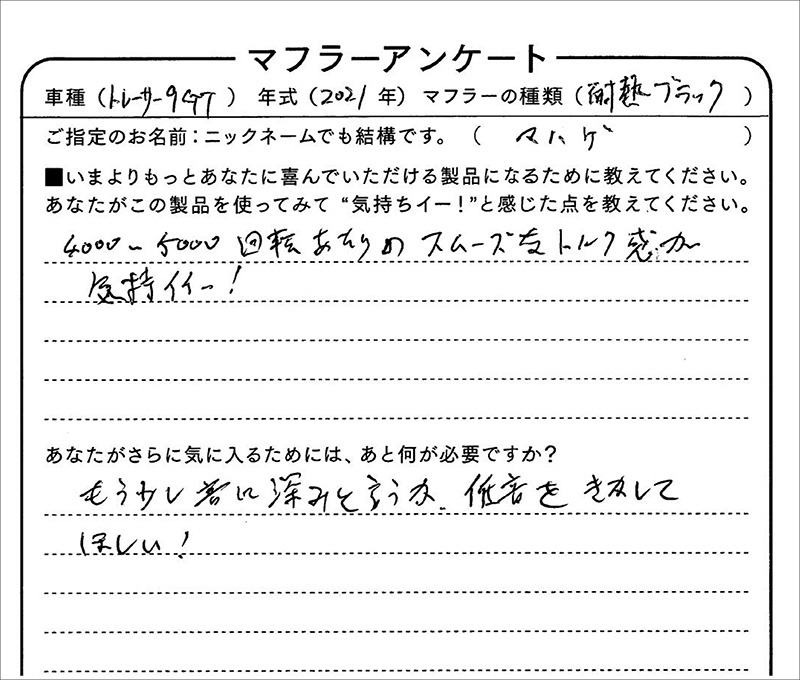 マフラーアンケート
車種（トレーサー9GT） 年式（2021年）マフラーの種類（耐熱ブラック）
ご指定のお名前：ニックネームでも結構です。（ マハゲ ）
■いまよりもっとあなたに喜んでいただける製品になるために教えてください。
あなたがこの製品を使ってみて“気持ちイー！”と感じた点を教えてください。
4000〜5000回転あたりのスムーズなトルク感が
気持イイー！
あなたがさらに気に入るためには、あと何が必要ですか？
もう少し音に深みと言うか、低音をきかして
ほしい！